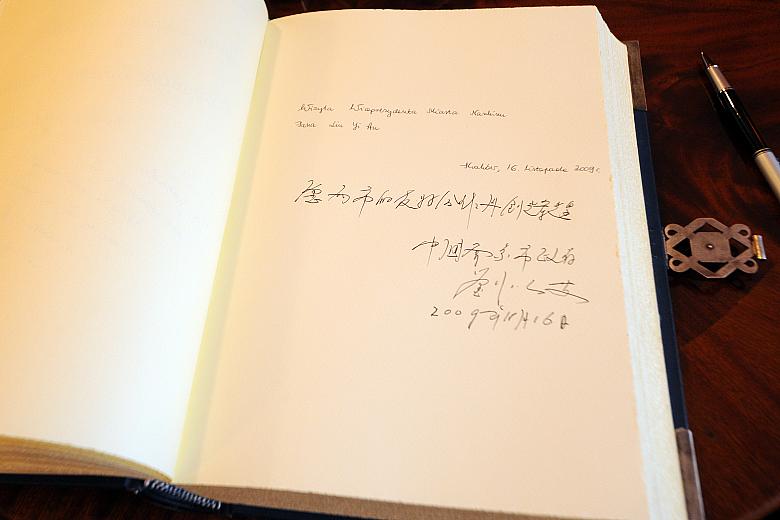 Wizyta Wiceprezydenta Miasta Nankinu
Pana Liu Yi An
Kraków, 16. Listopada 2009 r.
愿两市的友好合作再创辉煌
中国南京市政府
刘以安
2009年11月16日